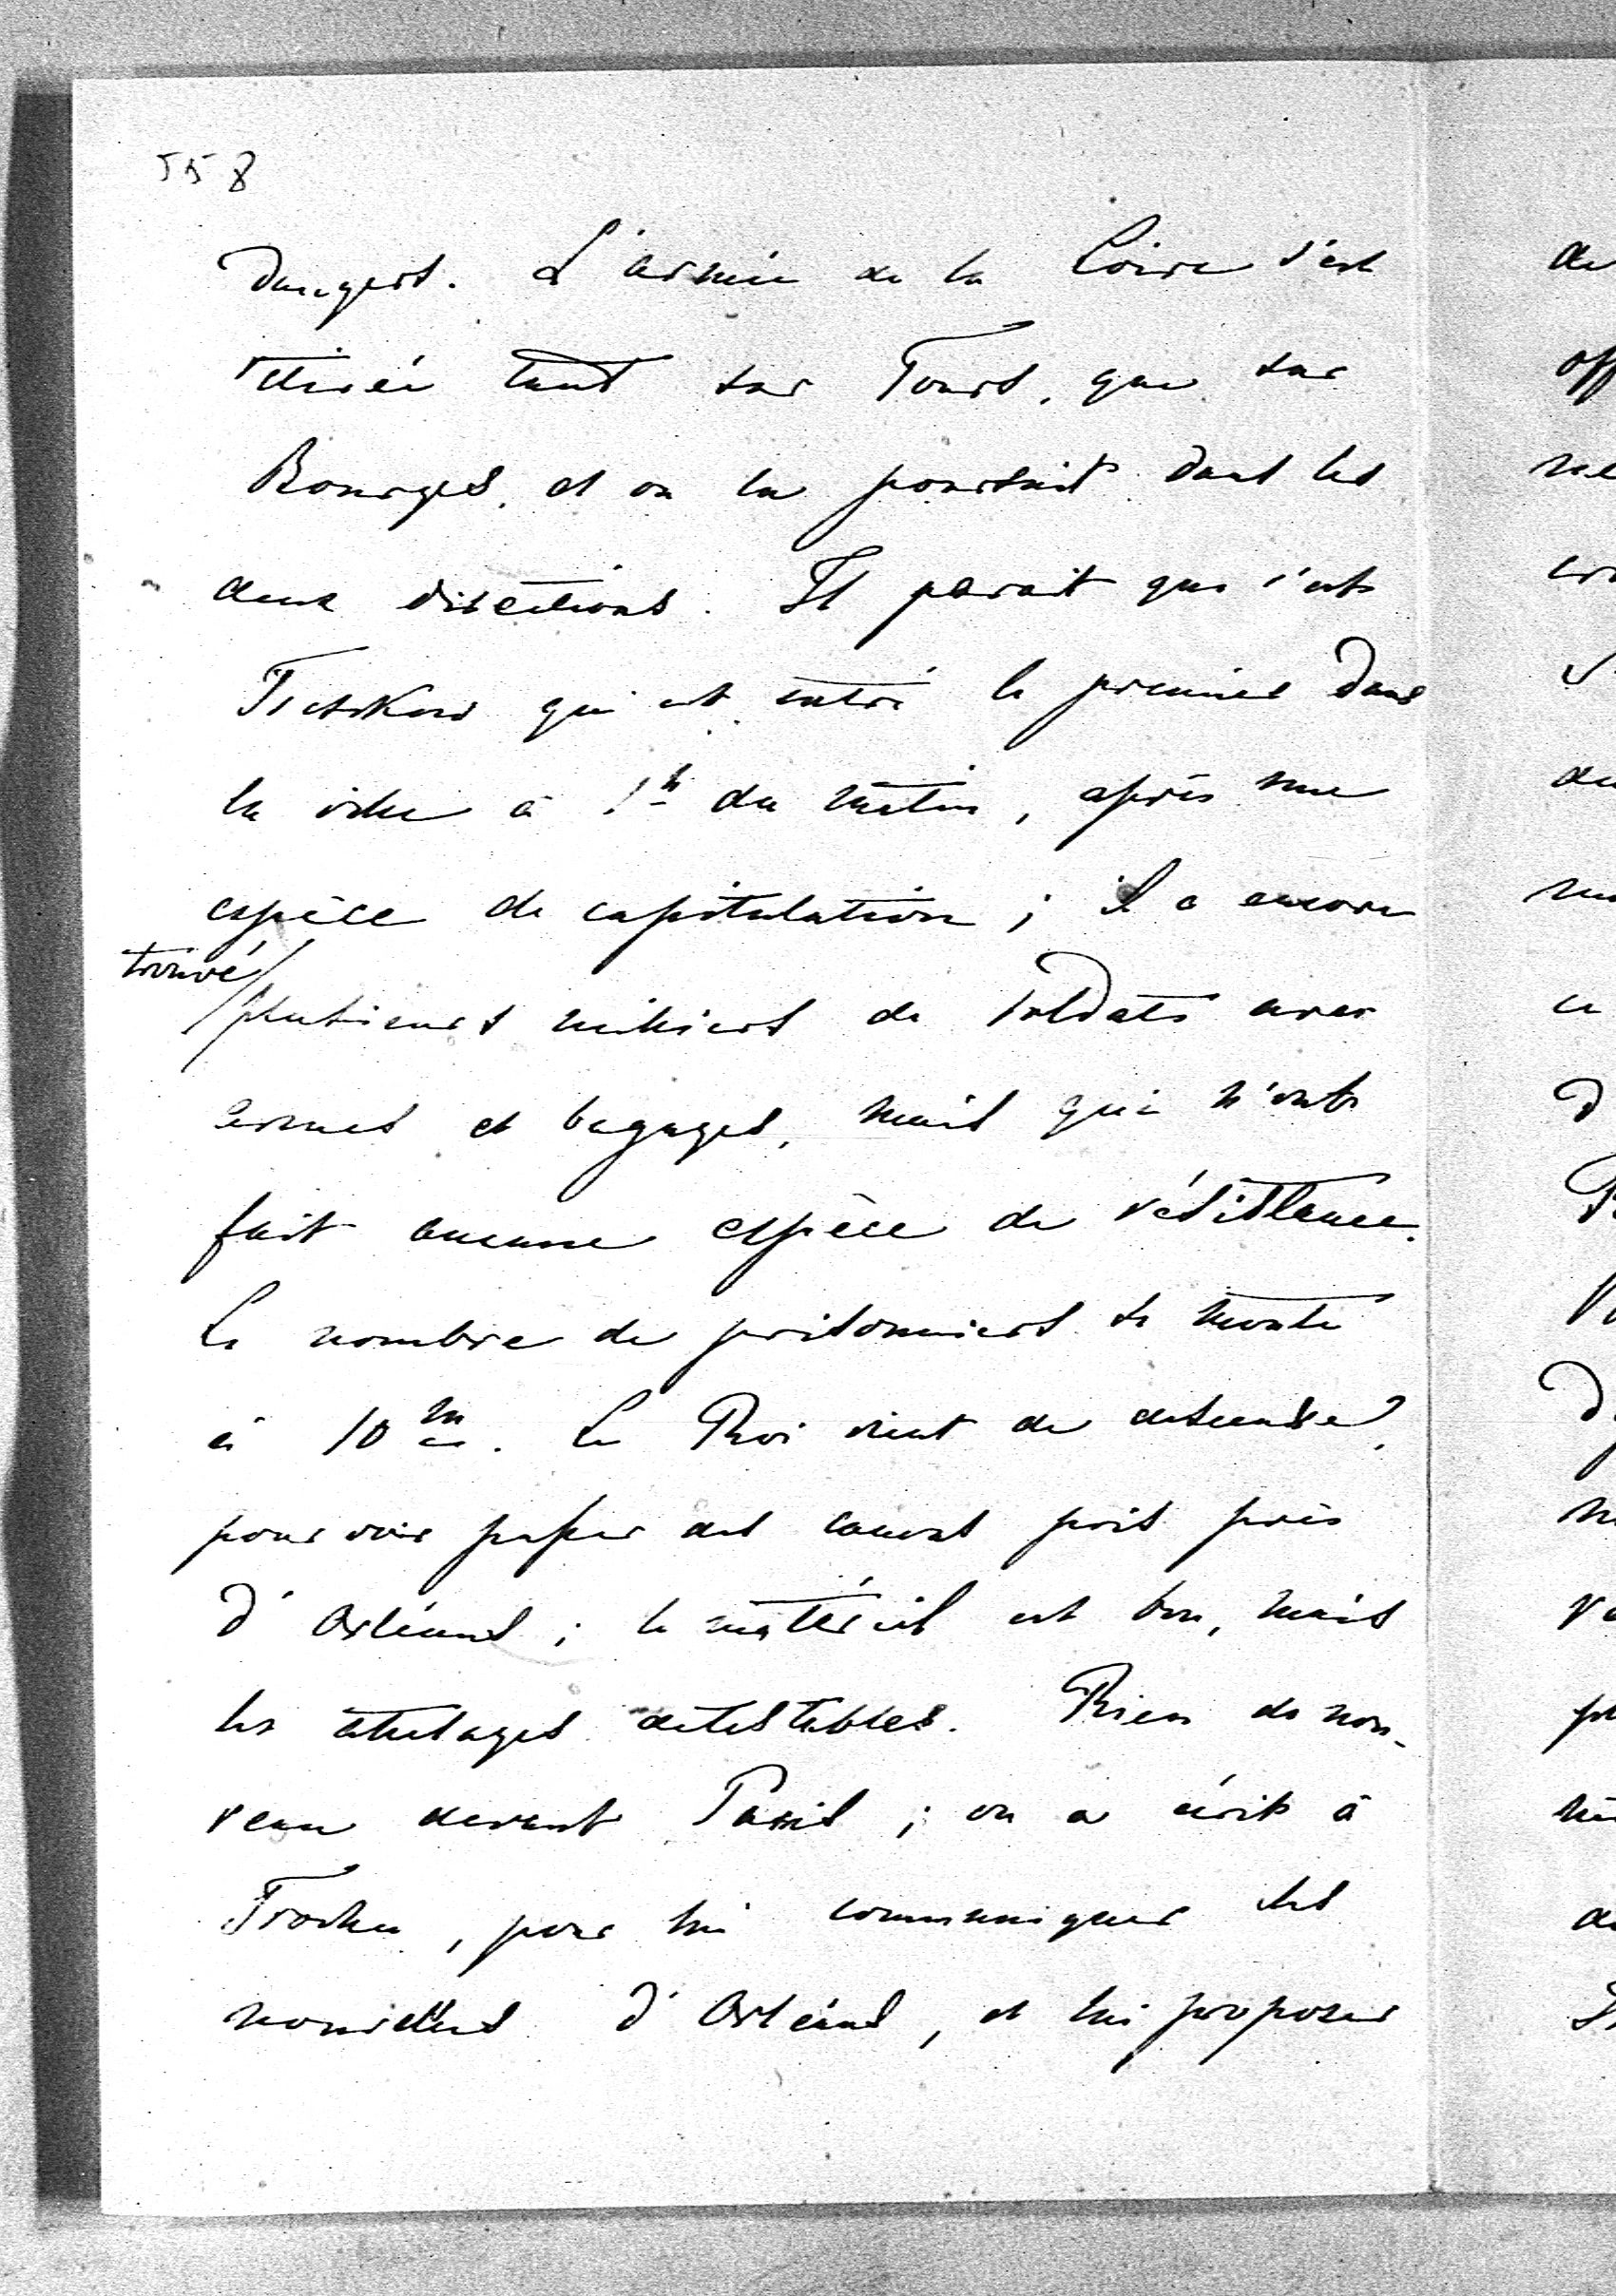 558
dangers. L'armée de la Loire s'est
retirée tant sur Tours, que sur
Bourges, et on la poursuit dans les
deux directions. Il parait que c'est
Treskow qui est entré le premier dans
la ville à 1h du matin, après une
espèce de capitulation; il a encore
trouvé
plusieurs milliers de soldats avec
armes et bagages, mais qui n'ont
fait aucune espèce de résistance.
Le nombre de prisonniers se monte
à 10m. Le Roi vient de descendre,
pour voir passer des canons pris près
d'Orléans; le matériel est bon, mais
les attelages détestables. Rien de nou-
veau devant Paris; on a écrit à
Trochu, pour lui communiquer les
nouvelles d'Orléans, et lui proposer